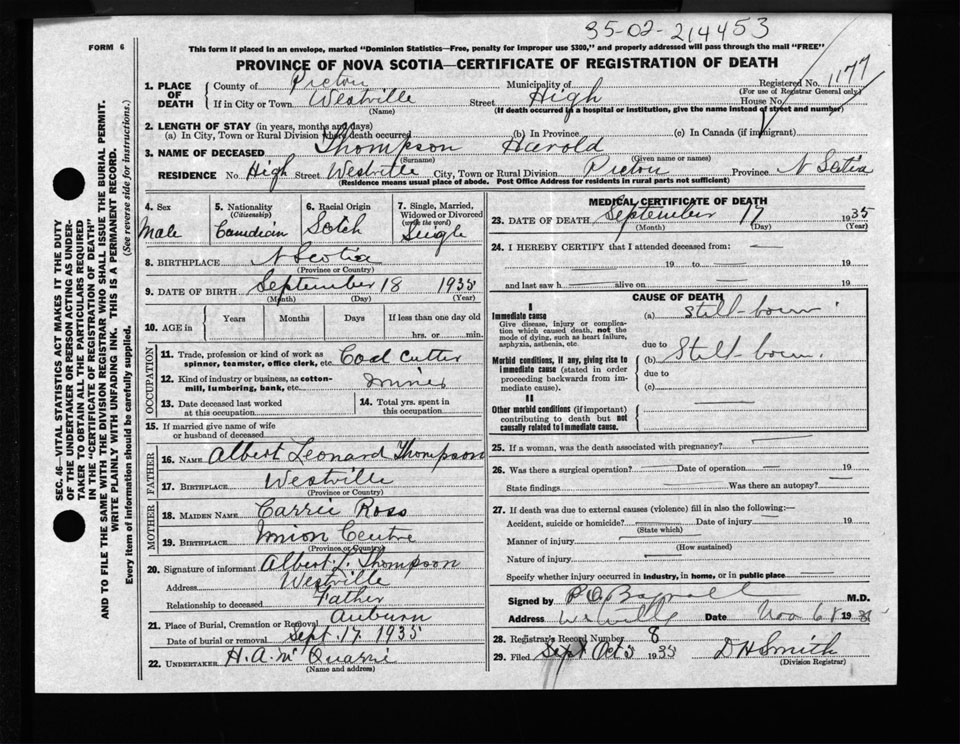 35-02-214453
FORM 6
This form if placed in an envelope, marked "Dominion Statistics—Free, penalty for improper use $300," and properly addressed will pass through the mail "FREE"
PROVINCE OF NOVA SCOTIA—CERTIFICATE OF REGISTRATION OF DEATH
SEC. 46—VITAL STATISTICS ACT MAKES IT THE DUTY
OF THE UNDERTAKER OR PERSON ACTING AS UNDER-
TAKER TO OBTAIN ALL THE PARTICULARS REQUIRED
IN THE "CERTIFICATE OF REGISTRATION OF DEATH"
AND TO FILE THE SAME WITH THE DIVISION REGISTRAR WHO SHALL ISSUE THE BURIAL PERMIT.
WRITE PLAINLY WITH UNFADING INK. THIS IS A PERMANENT RECORD.
Every item of information should be carefully supplied. (See reverse side for instructions.)
1. PLACE OF DEATH County of Pictou Municipality of Registered No. 1177
(For use of Registrar General only)
If in City or Town Westville Street High House No.
(Name) (If death occurred in a hospital or institution, give the name instead of street and number)
2. LENGTH OF STAY (in years, months and days)
(a) In City, Town or Rural Division where death occurred (b) In Province (c) In Canada (if immigrant)
3. NAME OF DECEASED Thompson Harold
(Surname) (Given name or names)
RESIDENCE No. High Street Westville City, Town or Rural Division Pictou Province N Scotia
(Residence means usual place of abode. Post Office Address for residents in rural parts not sufficient)
4. Sex Male
5. Nationality (Citizenship) Canadian
6. Racial Origin Scotch
7. Single, Married, Widowed or Divorced (write the word) Single
8. BIRTHPLACE N Scotia
(Province or Country)
9. DATE OF BIRTH September 18 1935
(Month) (Day) (Year)
10. AGE IN Years Months Days If less than one day old
hrs. or min.
OCCUPATION
11. Trade, profession or kind of work as spinner, teamster, office clerk, etc. Coal Cutter
12. Kind of industry or business, as cotton-mill, lumbering, bank, etc. mines
13. Date deceased last worked at this occupation
14. Total yrs. spent in this occupation
15. If married give name of wife or husband of deceased
FATHER
16. NAME Albert Leonard Thompson
17. BIRTHPLACE Westville
(Province or Country)
MOTHER
18. MAIDEN NAME Carrie Ross
19. BIRTHPLACE Union Centre
(Province or Country)
20. Signature of informant Albert L. Thompson
Address Westville
Relationship to deceased Father
21. Place of Burial, Cremation or Removal Auburn
Date of burial or removal Sept. 17 1935
22. UNDERTAKER H. A. Mc Quarrie
(Name and address)
MEDICAL CERTIFICATE OF DEATH
23. DATE OF DEATH September 17 1935
(Month) (Day) (Year)
24. I HEREBY CERTIFY that I attended deceased from:
19 to 19
and last saw h alive on 19
CAUSE OF DEATH
I
Immediate cause
Give disease, injury or complication which caused death, not the mode of dying, such as heart failure, asphyxia, asthenia, etc.
(a) still-born
due to
Morbid conditions, if any, giving rise to immediate cause (stated in order proceeding backwards from immediate cause).
(b) Still-born.
due to
(c)
II
Other morbid conditions (if important) contributing to death but not causally related to immediate cause.
25. If a woman, was the death associated with pregnancy?
26. Was there a surgical operation? Date of operation 19
State findings Was there an autopsy?
27. If death was due to external causes (violence) fill in also the following:—
Accident, suicide or homicide? Date of injury 19
(State which)
Manner of injury
(How sustained)
Nature of injury
Specify whether injury occurred in industry, in home, or in public place
Signed by M.D.
Address Date Nov 6 19
28. Registrar's Record Number 8
29. Filed Sept Oct 3 1935 D H Smith
(Division Registrar)